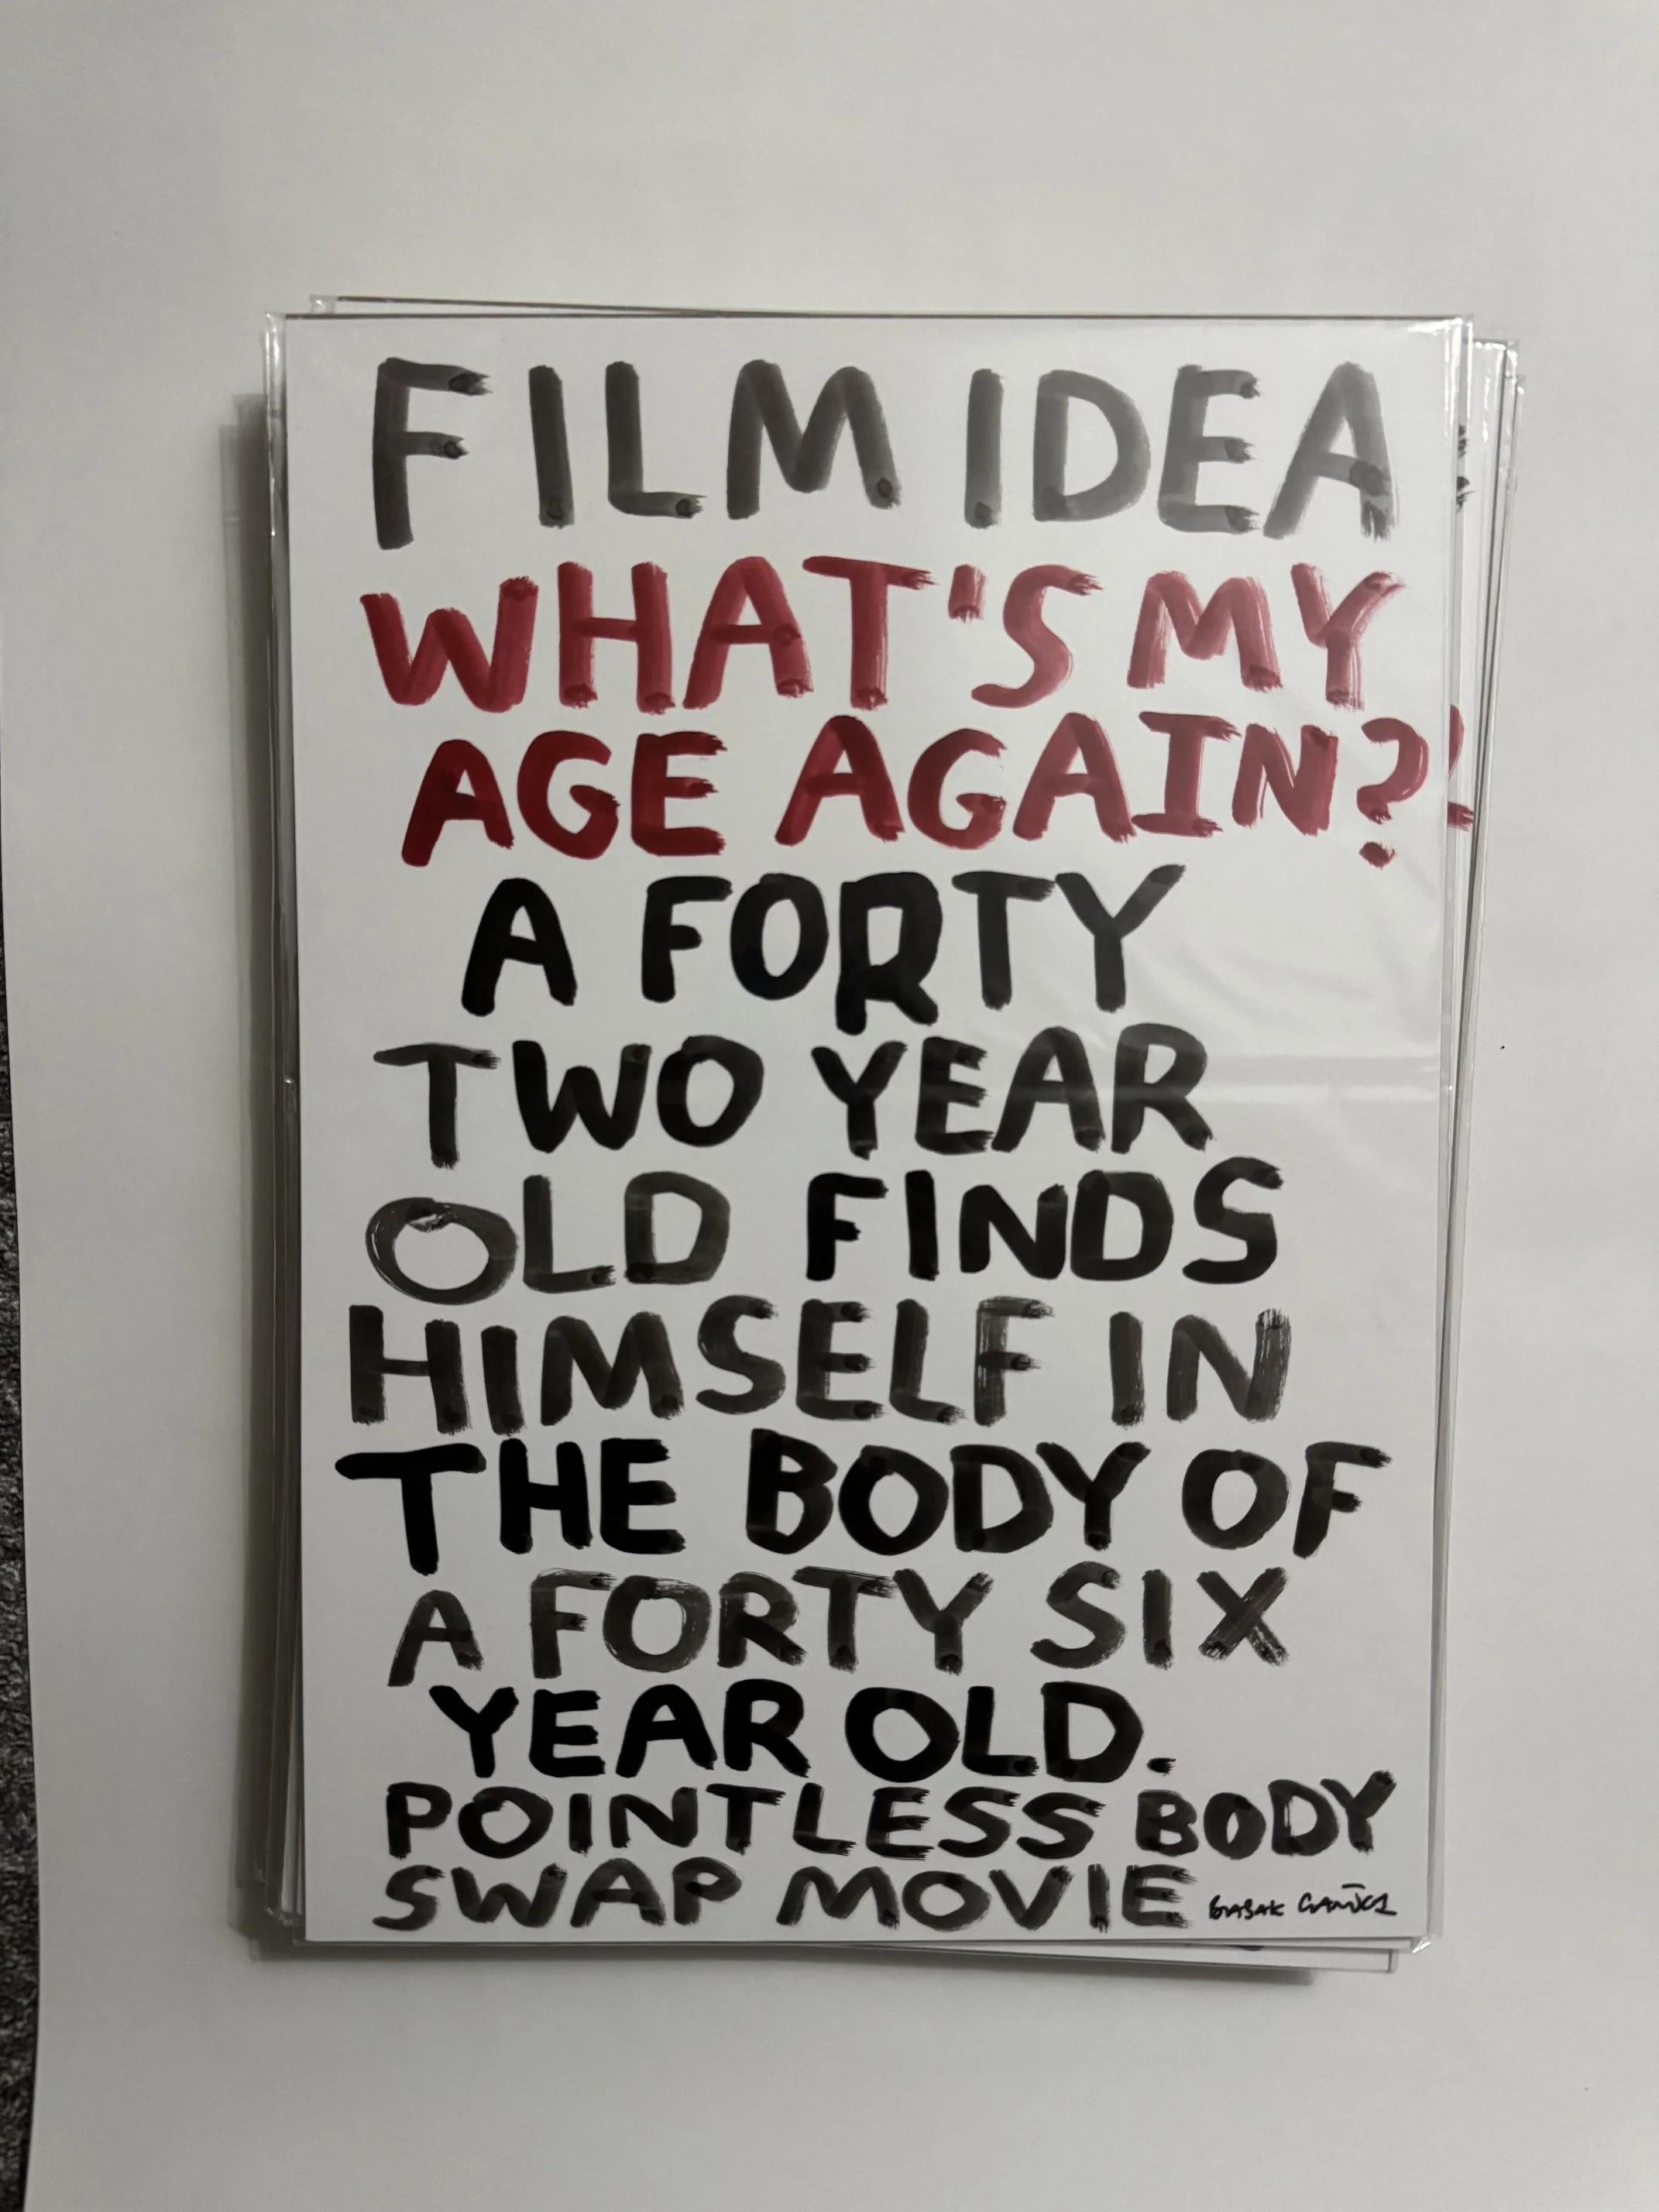 FILM IDEA
WHAT'S MY
AGE AGAIN?
A FORTY
TWO YEAR
OLD FINDS
HIMSELF IN
THE BODY OF
A FORTY SIX
YEAR OLD.
POINTLESS BODY
SWAP MOVIE